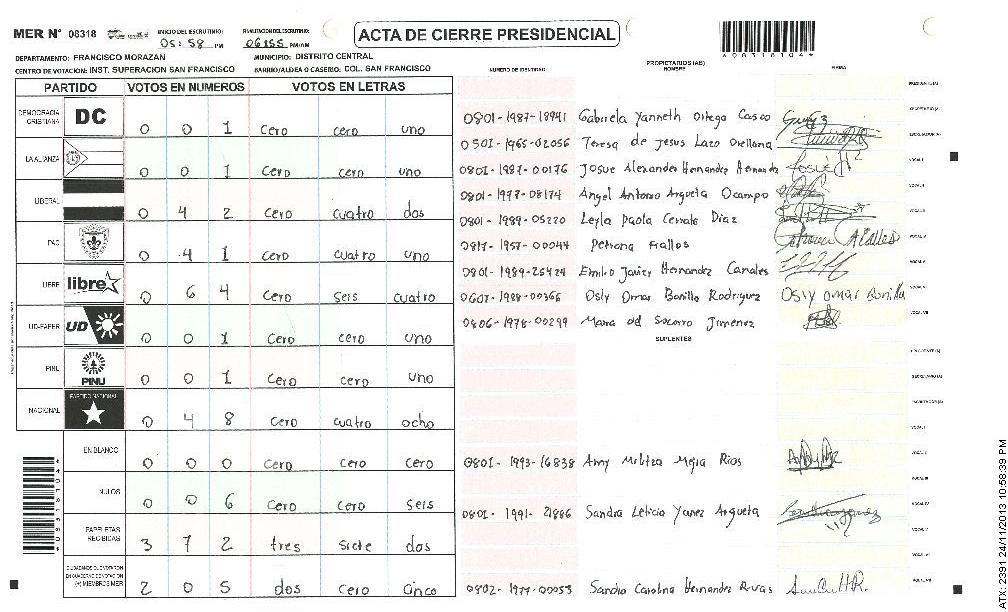 MER N° 08318
INICIO DEL ESCRUTINIO:
05:58 PM
06:55 PM/AM
ACTA DE CIERRE PRESIDENCIAL
*08318104*
DEPARTAMENTO: FRANCISCO MORAZAN
MUNICIPIO: DISTRITO CENTRAL
CENTRO DE VOTACION: INST. SUPERACION SAN FRANCISCO
BARRIO/ALDEA O CASERIO: COL. SAN FRANCISCO
PARTIDO VOTOS EN NUMEROS VOTOS EN LETRAS
DEMOCRACIA CRISTIANA DC 0 0 1 cero cero uno
LA ALIANZA 0 0 1 cero cero uno
LIBERAL 0 4 2 cero cuatro dos
PAC 0 4 1 cero cuatro uno
LIBRE libre 0 6 4 cero seis cuatro
UD-FAPER UD 0 0 1 cero cero uno
PINU PINU 0 0 1 cero cero uno
NACIONAL PARTIDO NACIONAL 0 4 8 cero cuatro ocho
EN BLANCO 0 0 0 cero cero cero
NULOS 0 0 6 cero cero seis
PAPELETAS RECIBIDAS 3 7 2 tres siete dos
CIUDADANOS QUE VOTARON EN CUADERNO DE VOTACION (+) MIEMBROS MER 2 0 5 dos cero cinco
NUMERO DE IDENTIDAD
PROPIETARIOS (AS)
NOMBRE
FIRMA
0801-1987-18941 Gabriela Yanneth Ortega Casco
0501-1965-02056 Teresa de Jesus Lazo Orellana
0801-1987-00176 Josue Alexander Hernandez Hernandez
0801-1977-08174 Angel Antonio Argueta Ocampo
0801-1989-05220 Leyla Paola Cerrato Diaz
0817-1957-00044 Petrona
0801-1989-25424 Emilio Javier Hernandez Canales
0607-1988-00365 Osly Omar Bonilla Rodriguez Osly Omar Bonilla
0806-1978-00299 Maria del Socorro Jimenez
SUPLENTES
0801-1993-16838 Amy Melitza Mejia Rios
0801-1991-21886 Sandra Leticia Yanez Argueta
0802-1977-00053 Sandra Carolina Hernandez Rivas
ATX 2391 24/11/2013 10:58:39 PM